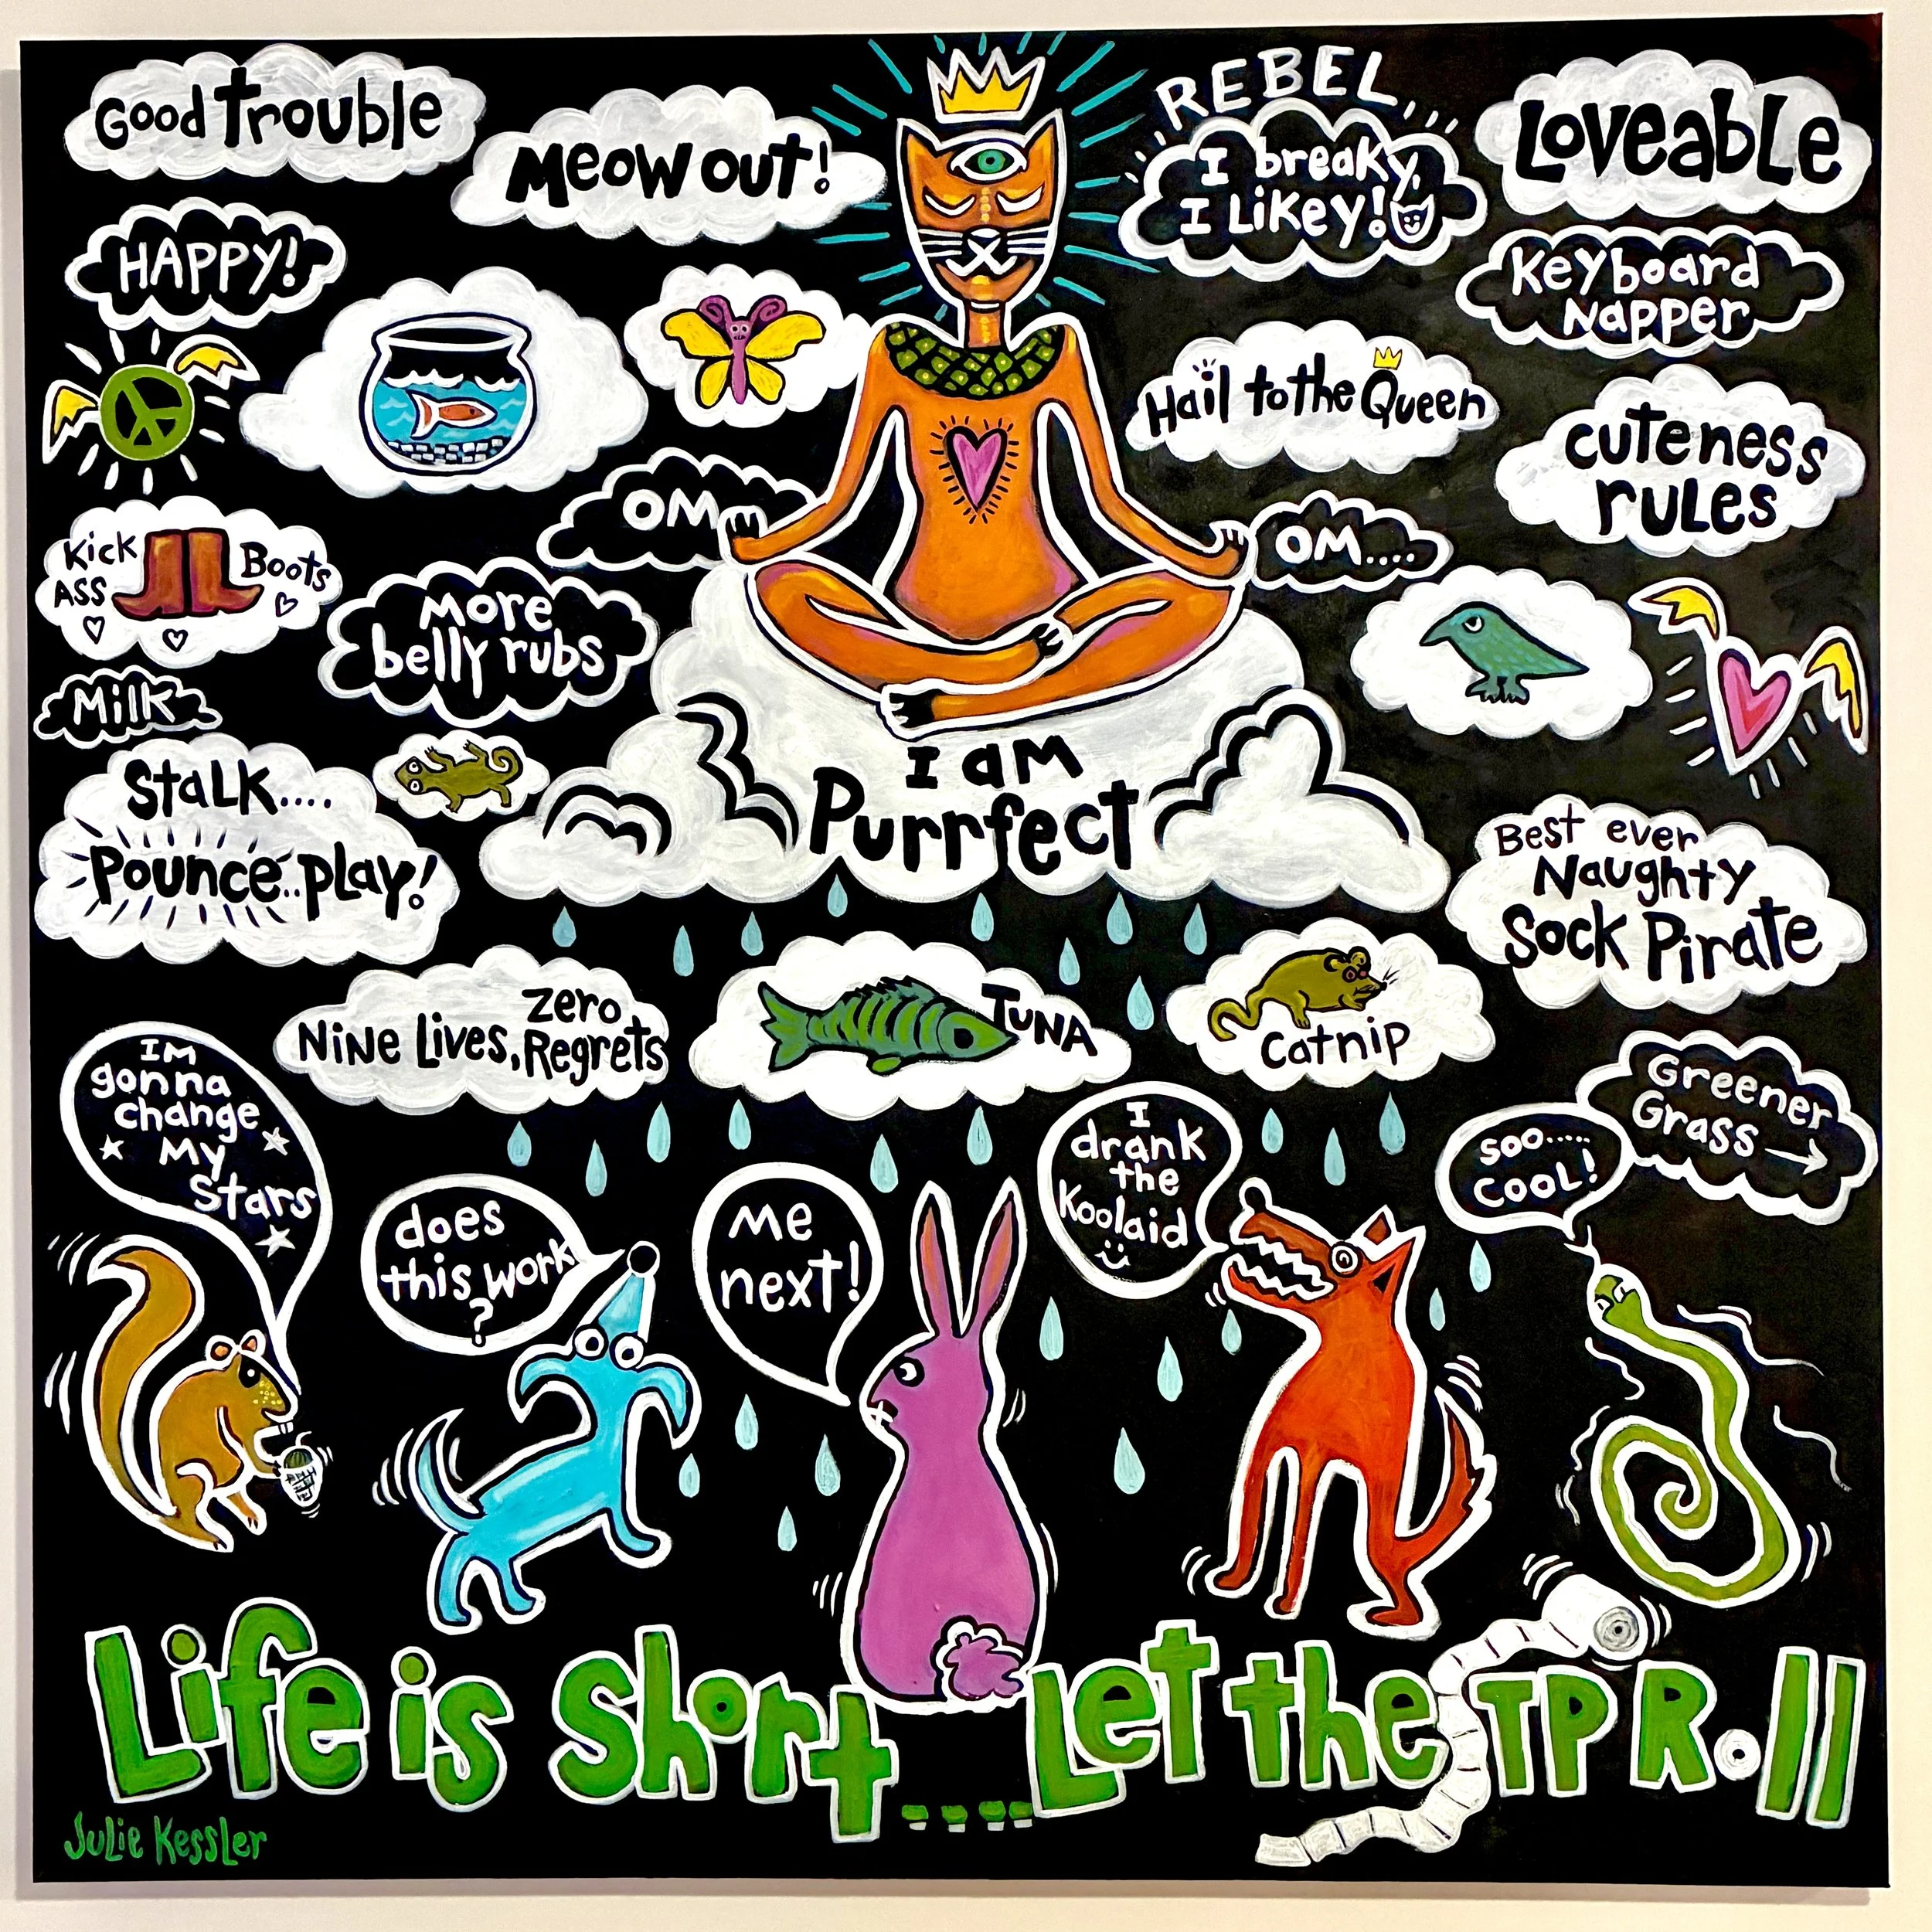 Good Trouble
Meow out!
REBEL
I breaky,
I Likey!
Loveable
HAPPY!
Keyboard
Napper
Hail to the Queen
cuteness
rules
OM
OM....
Kick
Ass
Boots
More
belly rubs
Milk
I am
Purrfect
Stalk....
Pounce..play!
Best ever
Naughty
Sock Pirate
Nine Lives,
zero
Regrets
Tuna
catnip
Greener
Grass
IM
gonna
change
My
Stars
does
this work
?
Me
next!
I
drank
the
Koolaid
soo.....
cool!
Life is Short....Let the TP Roll
Julie Kessler